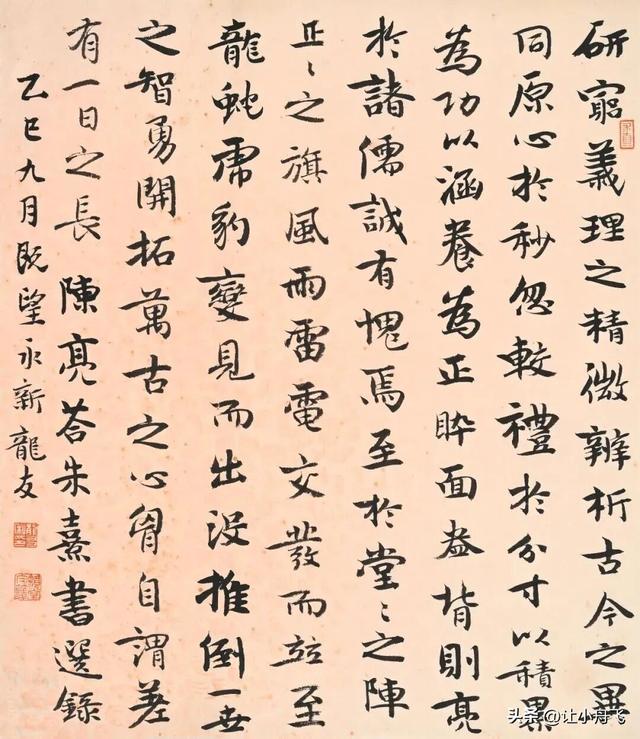 研窮義理之精微辨析古今之異
同原心於秒忽較禮於分寸以積累
為功以涵養為正睟面盎背則亮
於諸儒誠有愧焉至於堂〻之陣
正〻之旗風雨雷電交發而竝至
龍蛇虎豹變見而出沒推倒一世
之智勇開拓萬古之心胷自謂差
有一日之長陳亮荅朱熹書選錄
乙巳九月既望永新龍友
头条 @让小舟飞